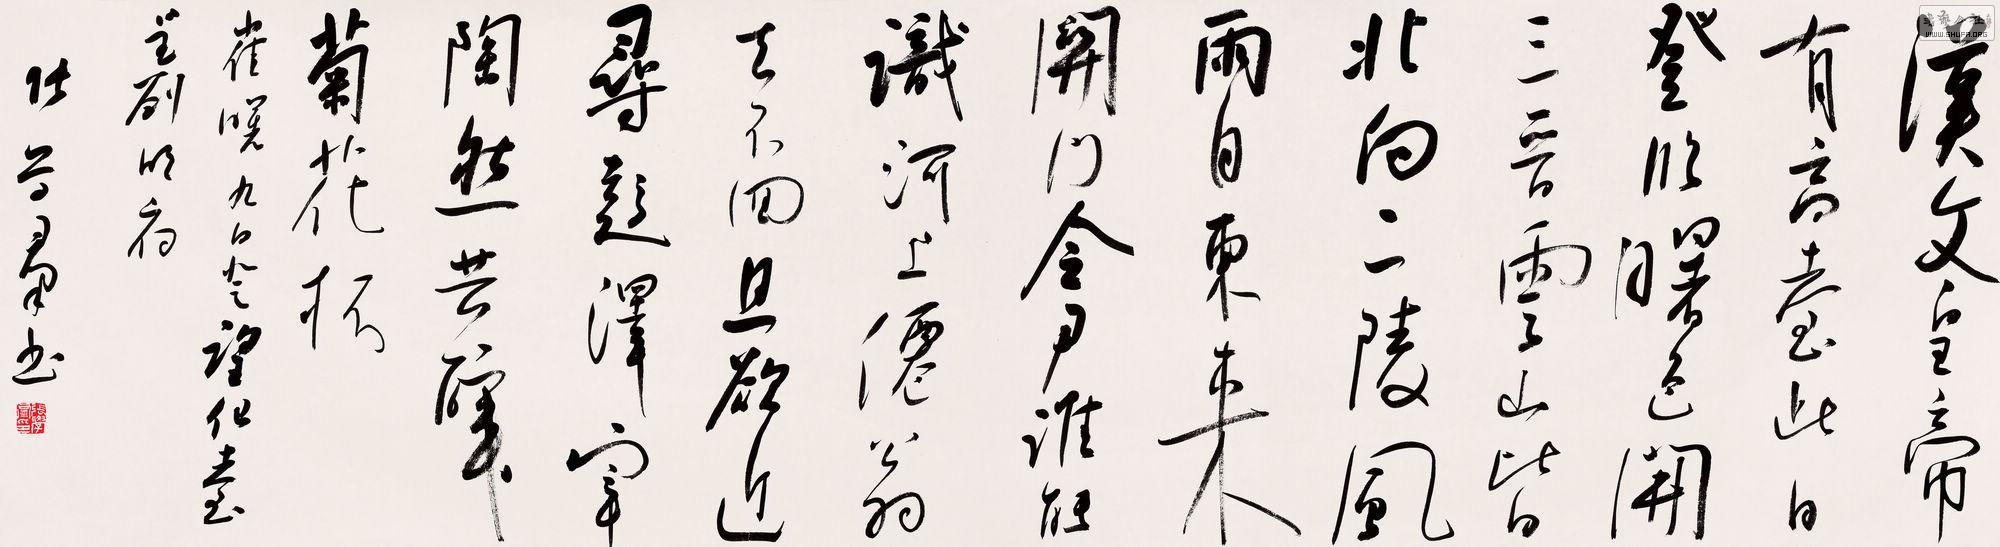 漢文皇帝
有高臺此日
登臨曙色開
三晉雲山皆
北向二陵風
雨自東來
關門令尹誰能
識河上僊翁
去不回且欲近
尋彭澤宰
陶然共醉
菊花杯
崔曙九日登望仙臺
呈劉明府
书
WWW.SHUFA.ORG